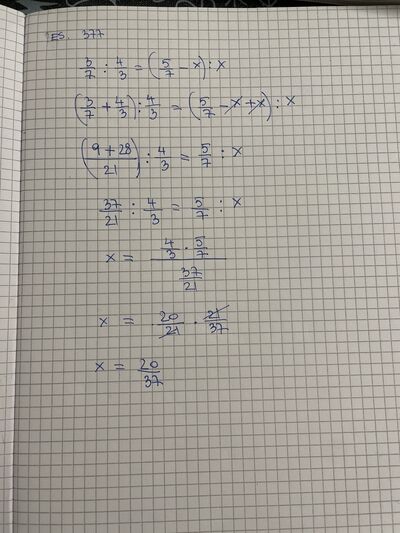 ES. 377
3/7 : 4/3 = (5/7 - x) : x
(3/7 + 4/3) : 4/3 = (5/7 - x + x) : x
((9 + 28)/21) : 4/3 = 5/7 : x
37/21 : 4/3 = 5/7 : x
x = (4/3 · 5/7)/(37/21)
x = 20/21 · 21/37
x = 20/37